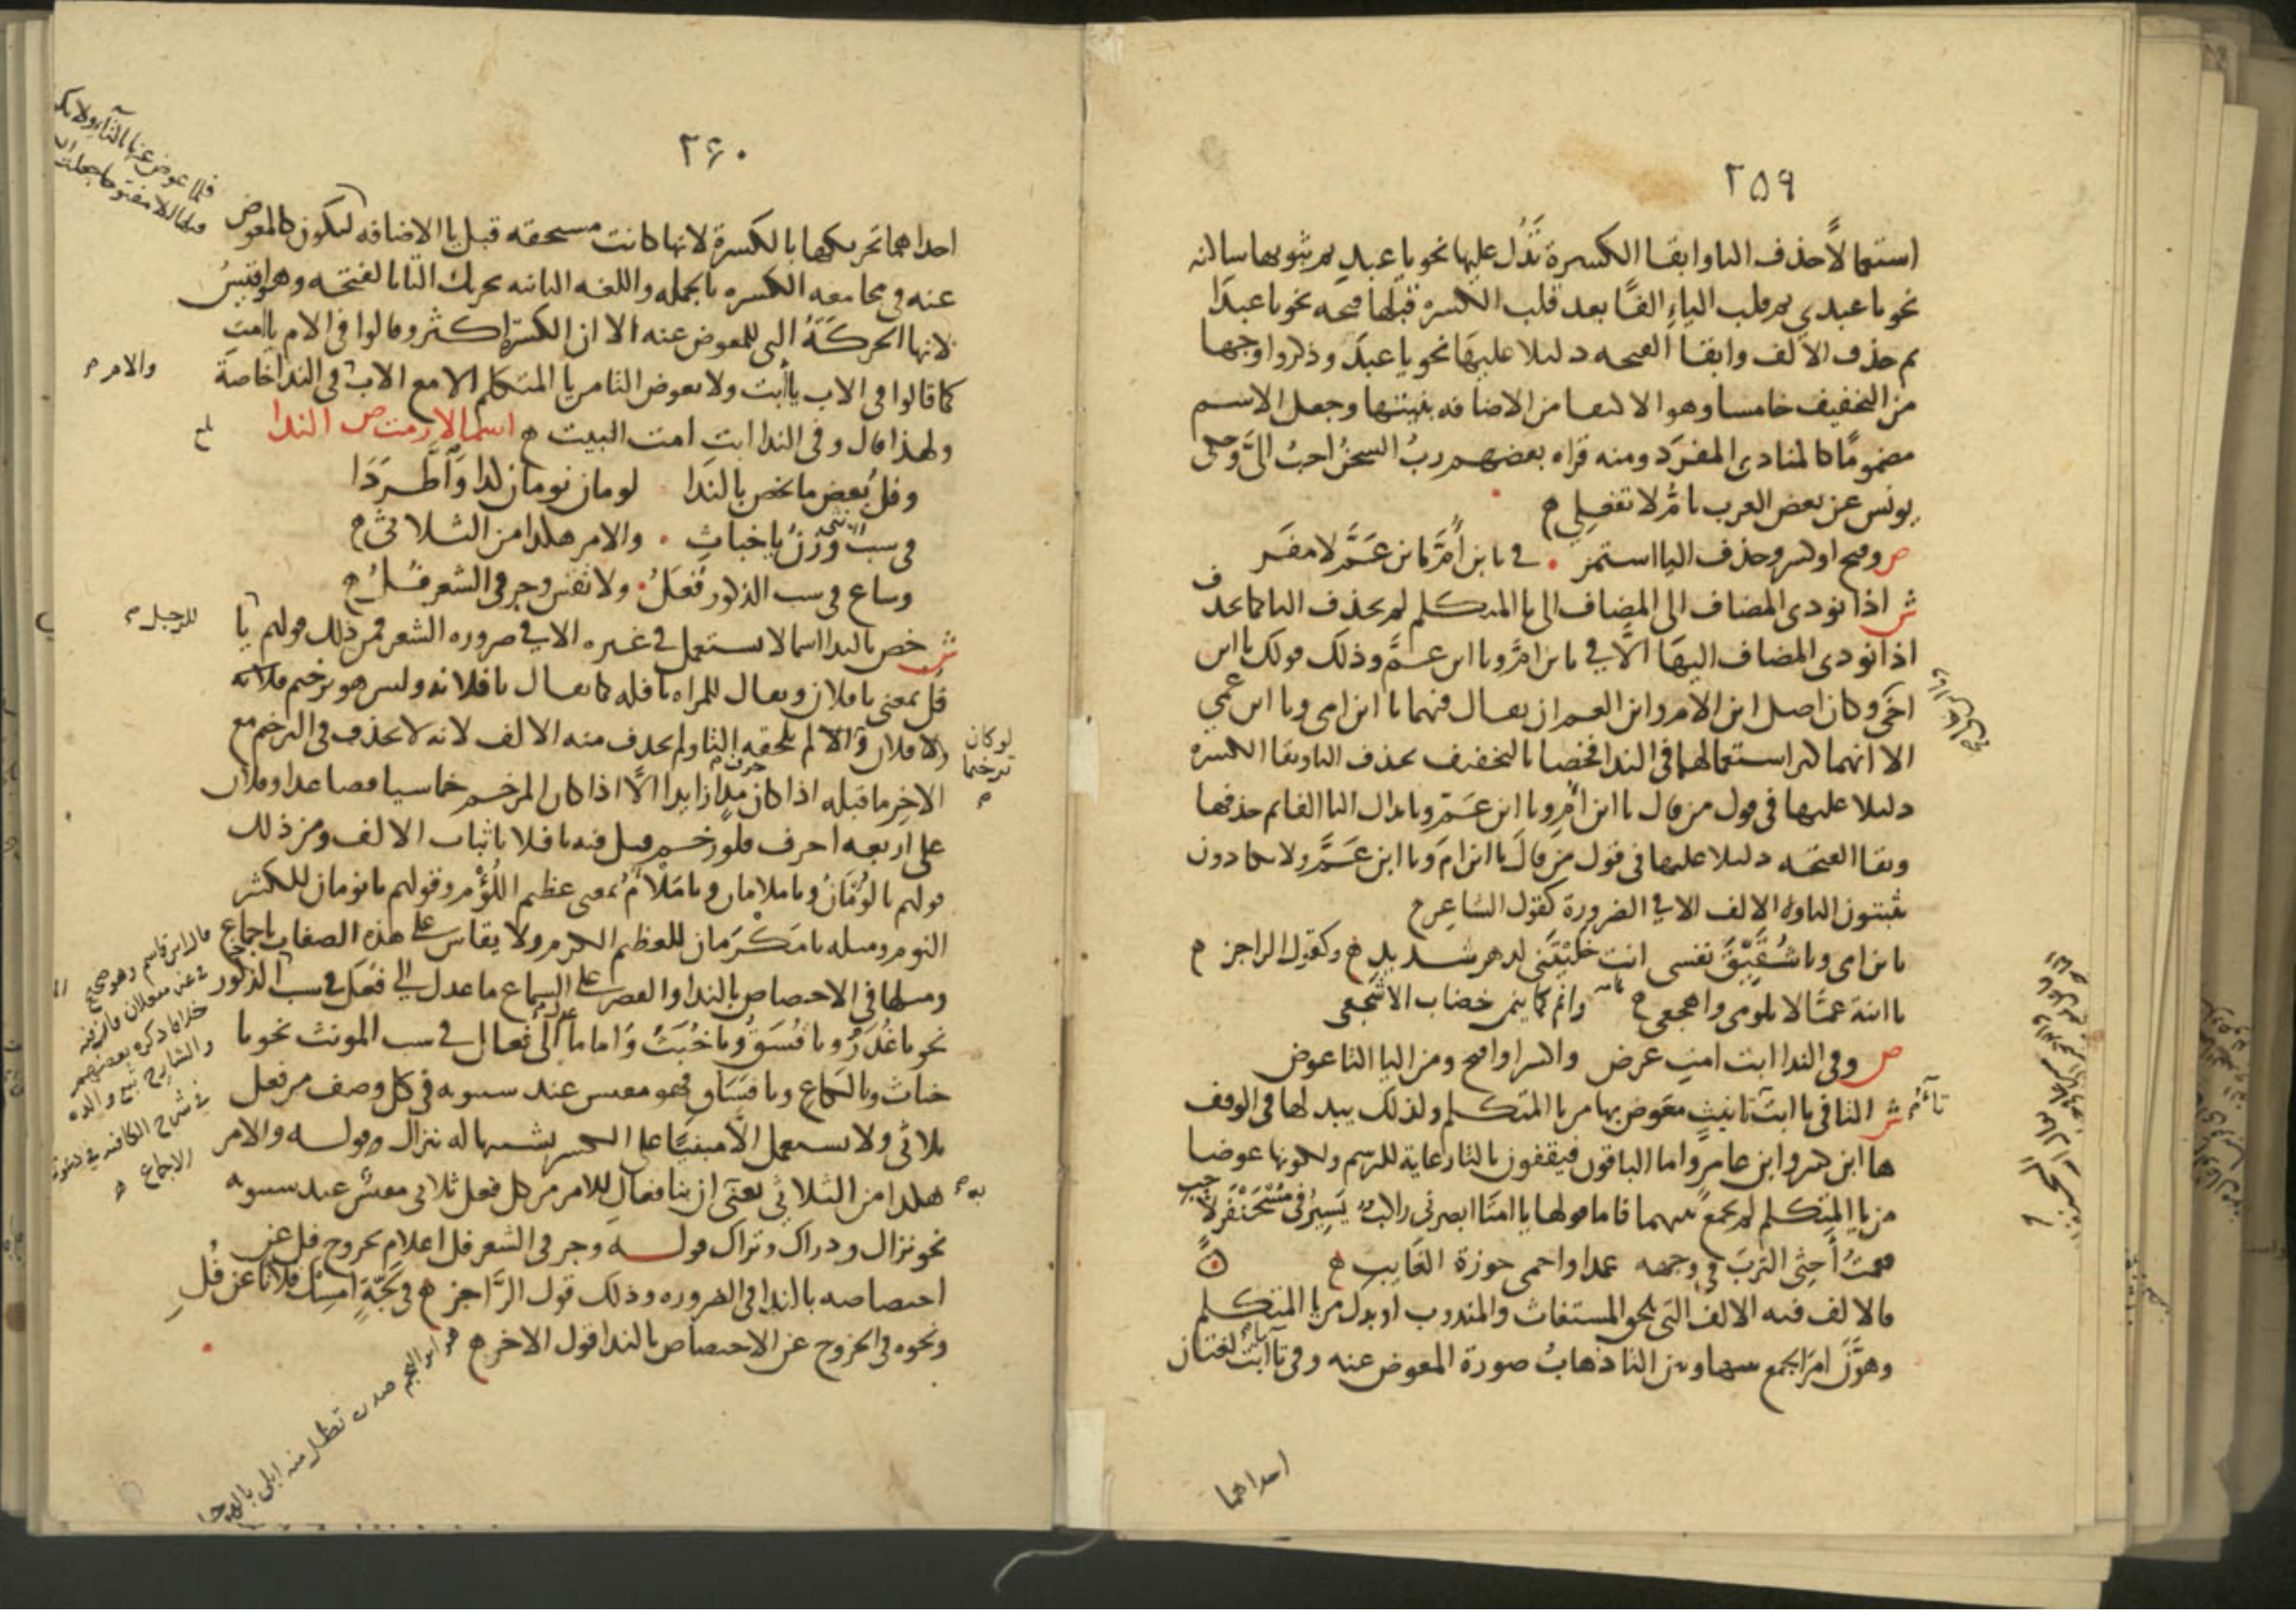 ٢٥٩
استعمالاً حذف اليا وابقا الكسرة تَدُل عليها نحو يا عبدِ ثم ثبوتها ساكنه
نحو يا عبدي ثم قلب الياءِ الفًا بعد قلب الكسره قبلها فتحه نحو يا عبدَا
ثم حذف الالف وابقا الفتحه دليلا عليهَا نحو يا عبدَ وذكروا وجها
من التخفيف خامسا وهو الاكتفا من الاضافه بنيتها وجعل الاسم
مضمومًا كالمنادى المفرَد ومنه قراه بعضهم ربُ السجنُ احبُ الىَّ وحكى
يونس عن بعض العرب يا مُّ لا تفعلي
ص وفتح او كسر وحذف اليا استمر . في يا بن اُمَّ يا بن عَمَّ لا مفَر
ش اذا نودى المضاف الى المضاف الى يا المتكلم لم يحذف اليا كما تحذف
اذا نودى المضاف اليهَا الَّا في يا بن امَّ ويا ابن عمَّ وذلك قولك يا ابن
اخي وكان اصل ابن الام وابن العم ان يقال فيهما يا ابن امى ويا ابن عمي
الا انهما كثر استعمالهما في الندا فخصا بالتخفيف بحذف اليا وبقا الكسره
دليلا عليها في قول من قال يا ابن اُمِ ويا ابن عمِّ وبابدال اليا الفا ثم حذفها
وبقا الفتحه دليلا عليها في قول من قالَ يا ابن امَ ويا ابن عَمَّ ولا يكادون
يثبتون اليا ولا الالف الا في الضرورة كقول الشاعِر
يا بن امى ويا شُقَيِّقَ نفسى انت خلَّيْتَنِى لدهر شديدِ وكقول الراجز
يا ابنة عمَّا لا تلومى واهجعى وانم كما ينمى خضاب الاشجعى
ص وفى الندا ابت امتِ عرض واكسر او افتح ومن اليا التا عوض
ش التا في يا ابتَ تانيثٍ معَوض بها من يا المتكلم ولذلك يبدلها في الوقف
ها ابن كثير وابن عامرٍ واما الباقون فيقفون بالتا رعاية للرسم ولكونها عوضا
من يا المتكلم لم يجمع بينهما فاما قولها يا امتَا ابصرنى راكبٌ يَسِيرُ في مُسْحَنْفَرٍ لاحب
فقمتُ اَحثِى التربَ في وجهه عمدا واحمى حوزة الغَائب
فالالف فيه الالف التى تلحق المستغاث والمندوب او بدل من يا المتكلم
وهَوَّن امرَ الجمع بينها وبين التا ذهابُ صورة المعوض عنه وفى تا ابت لغتان
احداهما
٢٦٠
احداهما تحريكها بالكسرة لانها كانت مستحقه قبل يا الاضافه ليكون كالمعوض
عنه في مجامعه الكسره بالجمله واللغه الثانيه تحريك التا بالفتحه وهو اقيسُ
لانها الحركَةُ التى للمعوض عنه الا ان الكسرَ اكثر وقالوا في الام يا امت
كما قالوا في الاب يا أبت ولا تعوض التا من يا المتكلم الا مع الاب في الندا خاصة
والام
ولهذا قال وفى الندا ابت امت البيت اسما لازمت ص الندا
وفلُ بعض ما يخص بالندَا لومان نومان كذا وَاطَّرَدَا
في سب الانثى وَزنُ يا خباثِ . والامر هكذا من الثلاثى
وساع في سب الذكور فُعَلُ . ولا تقس وجر في الشعر فُلُ
ش خص بالندا اسما لا يستعمل في غيره الا في ضروره الشعر فمن ذلك قولهم يا
للرجل
فُلُ بمعنى يا فلان ويقال للمراه يا فله كما يقال يا فلانه وليس هو ترخيم فلانه
ولا فلان والا لم تلحقه التا ولم يحذف منه الالف لانه لا يحذف في الترخيم مع
لو كان ترخيما
الاخِر ما قبله اذا كان حرف مدٍ زايدا الَّا اذا كان المرخم خماسيا فصاعدا وفلان
على اربعه احرف فلو رخم قيل فيه يا فلا باثبات الالف ومن ذلك
قولهم يا لُؤمَانُ ويا ملامان ويا مَلْأَمُ بمعنى عظيم اللُؤْم وقولهم يا نومان للكثير
النوم ومثله يا مَكْرَمان للعظيم الكرم ولا يقاس على هذه الصفات باجماع
ومثلها في الاختصاص بالندا والقصر على السماع ما عدل الى فُعَل في سب الذكور
نحو يا غُدَرُ ويا فُسَقُ ويا خُبَثُ وَاما ما عدل الى فَعال في سب المونث نحو يا
خباث ويا لكاع ويا فسَاق فهو مقيس عند سيبويه في كل وصف من فعل
ثلاثى ولا يستعمل الَّا مبنيًا على الكسر تشبيها له بنزال وقوله والامر
هكذا من الثلاثي يعنى ان بنا فعالِ للامر من كل فعل ثلاثى مقيس عند سيبويه
نحو نزال ودراك وتراك قوله وجر في الشعر فل اعلام بخروج فل عن
اختصاصه بالندا في الضروره وذلك قول الرَّاجز في لَجَّةٍ امسِك فلانًا عن فُلِ
ونحوه في الخروج عن الاختصاص بالندا قول الاخر
قال ابن قاسم وهو صحيح
خلافا ذكره بعضهم
والشارح تبع والده
في شرح الكافيه في دعوى
الاجماع
هو ابو النجم صدره تظل منه ابلى بالهوجل